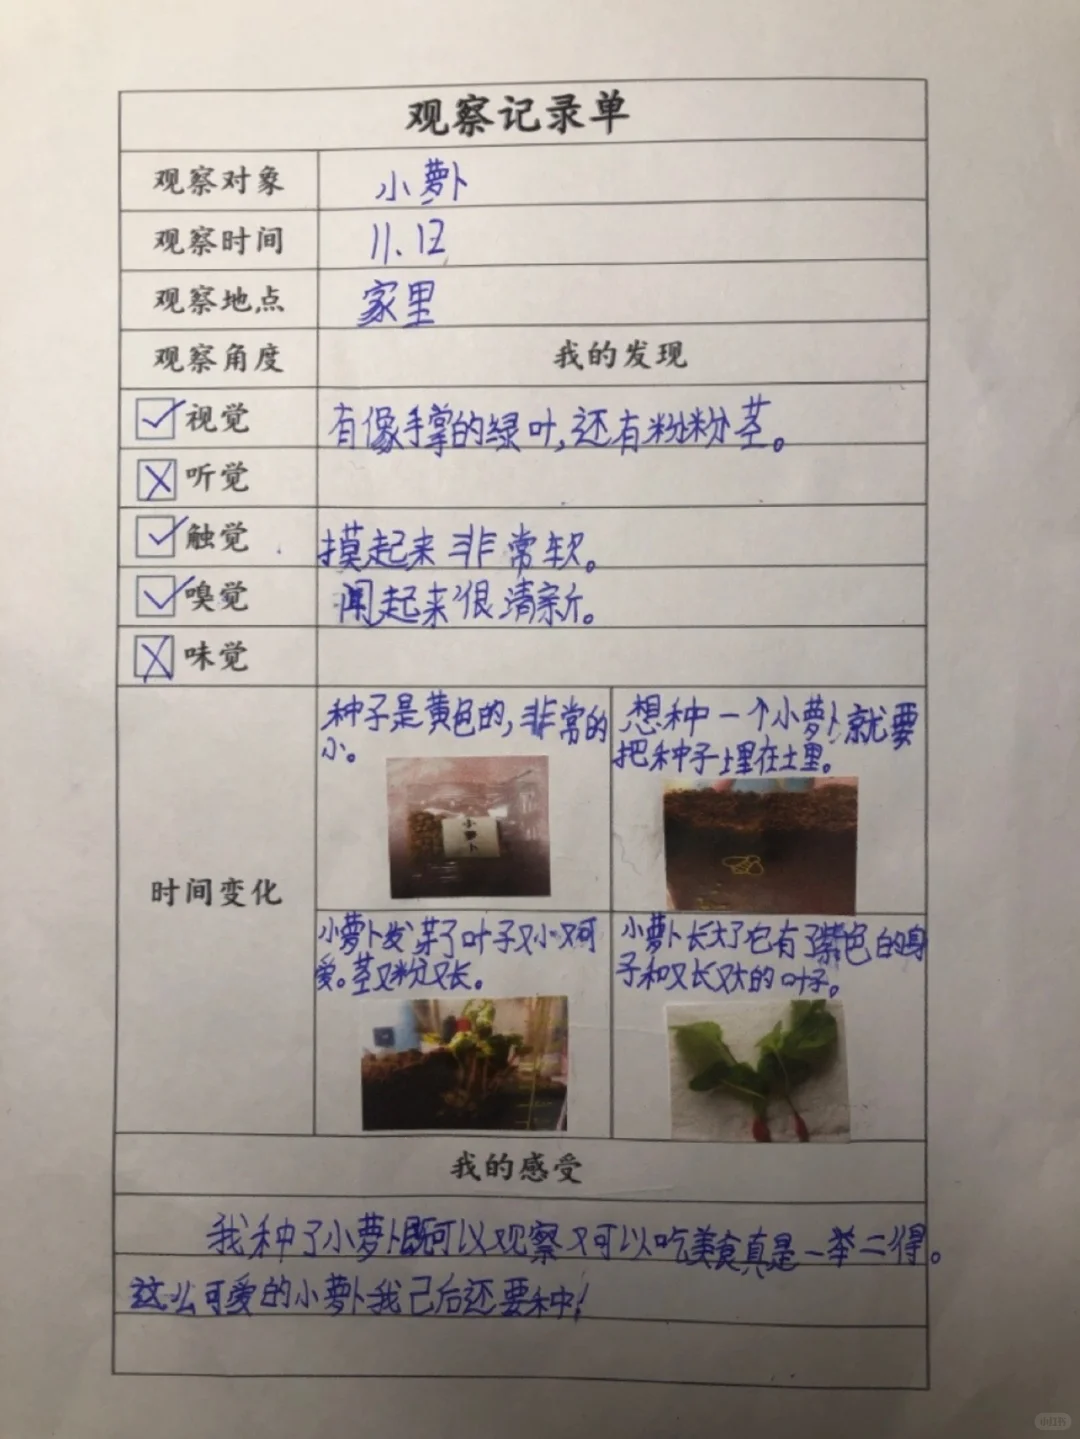 观察记录单
观察对象 小萝卜
观察时间 11.12
观察地点 家里
观察角度 我的发现
视觉 有像手掌的绿叶,还有粉粉茎。
听觉
触觉 摸起来非常软。
嗅觉 闻起来很清新。
味觉
种子是黄色的,非常的
小。
小萝卜
想种一个小萝卜就要
把种子埋在土里。
时间变化
小萝卜发芽了叶子又小又可
爱。茎又粉又长。
小萝卜长大了它有了紫色的身
子和又长又大的叶子。
我的感受
我种了小萝卜既可以观察又可以吃美食真是一举二得。
这么可爱的小萝卜我己后还要种!
小红书